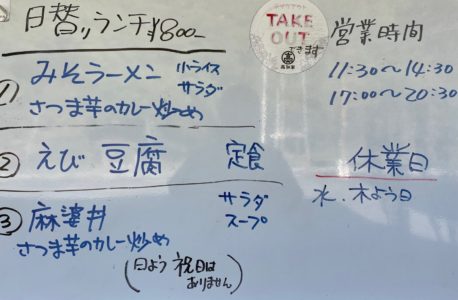 日替りランチ¥800-
① みそラーメン 小ライス
サラダ
さつま芋のカレー炒め
② えび 豆腐 定食
③ 麻婆丼 サラダ
スープ
さつま芋のカレー炒め
(日よう 祝日は
ありません)
TAKE
OUT
できます
営業時間
11:30〜14:30
17:00〜20:30
休業日
水.木よう日